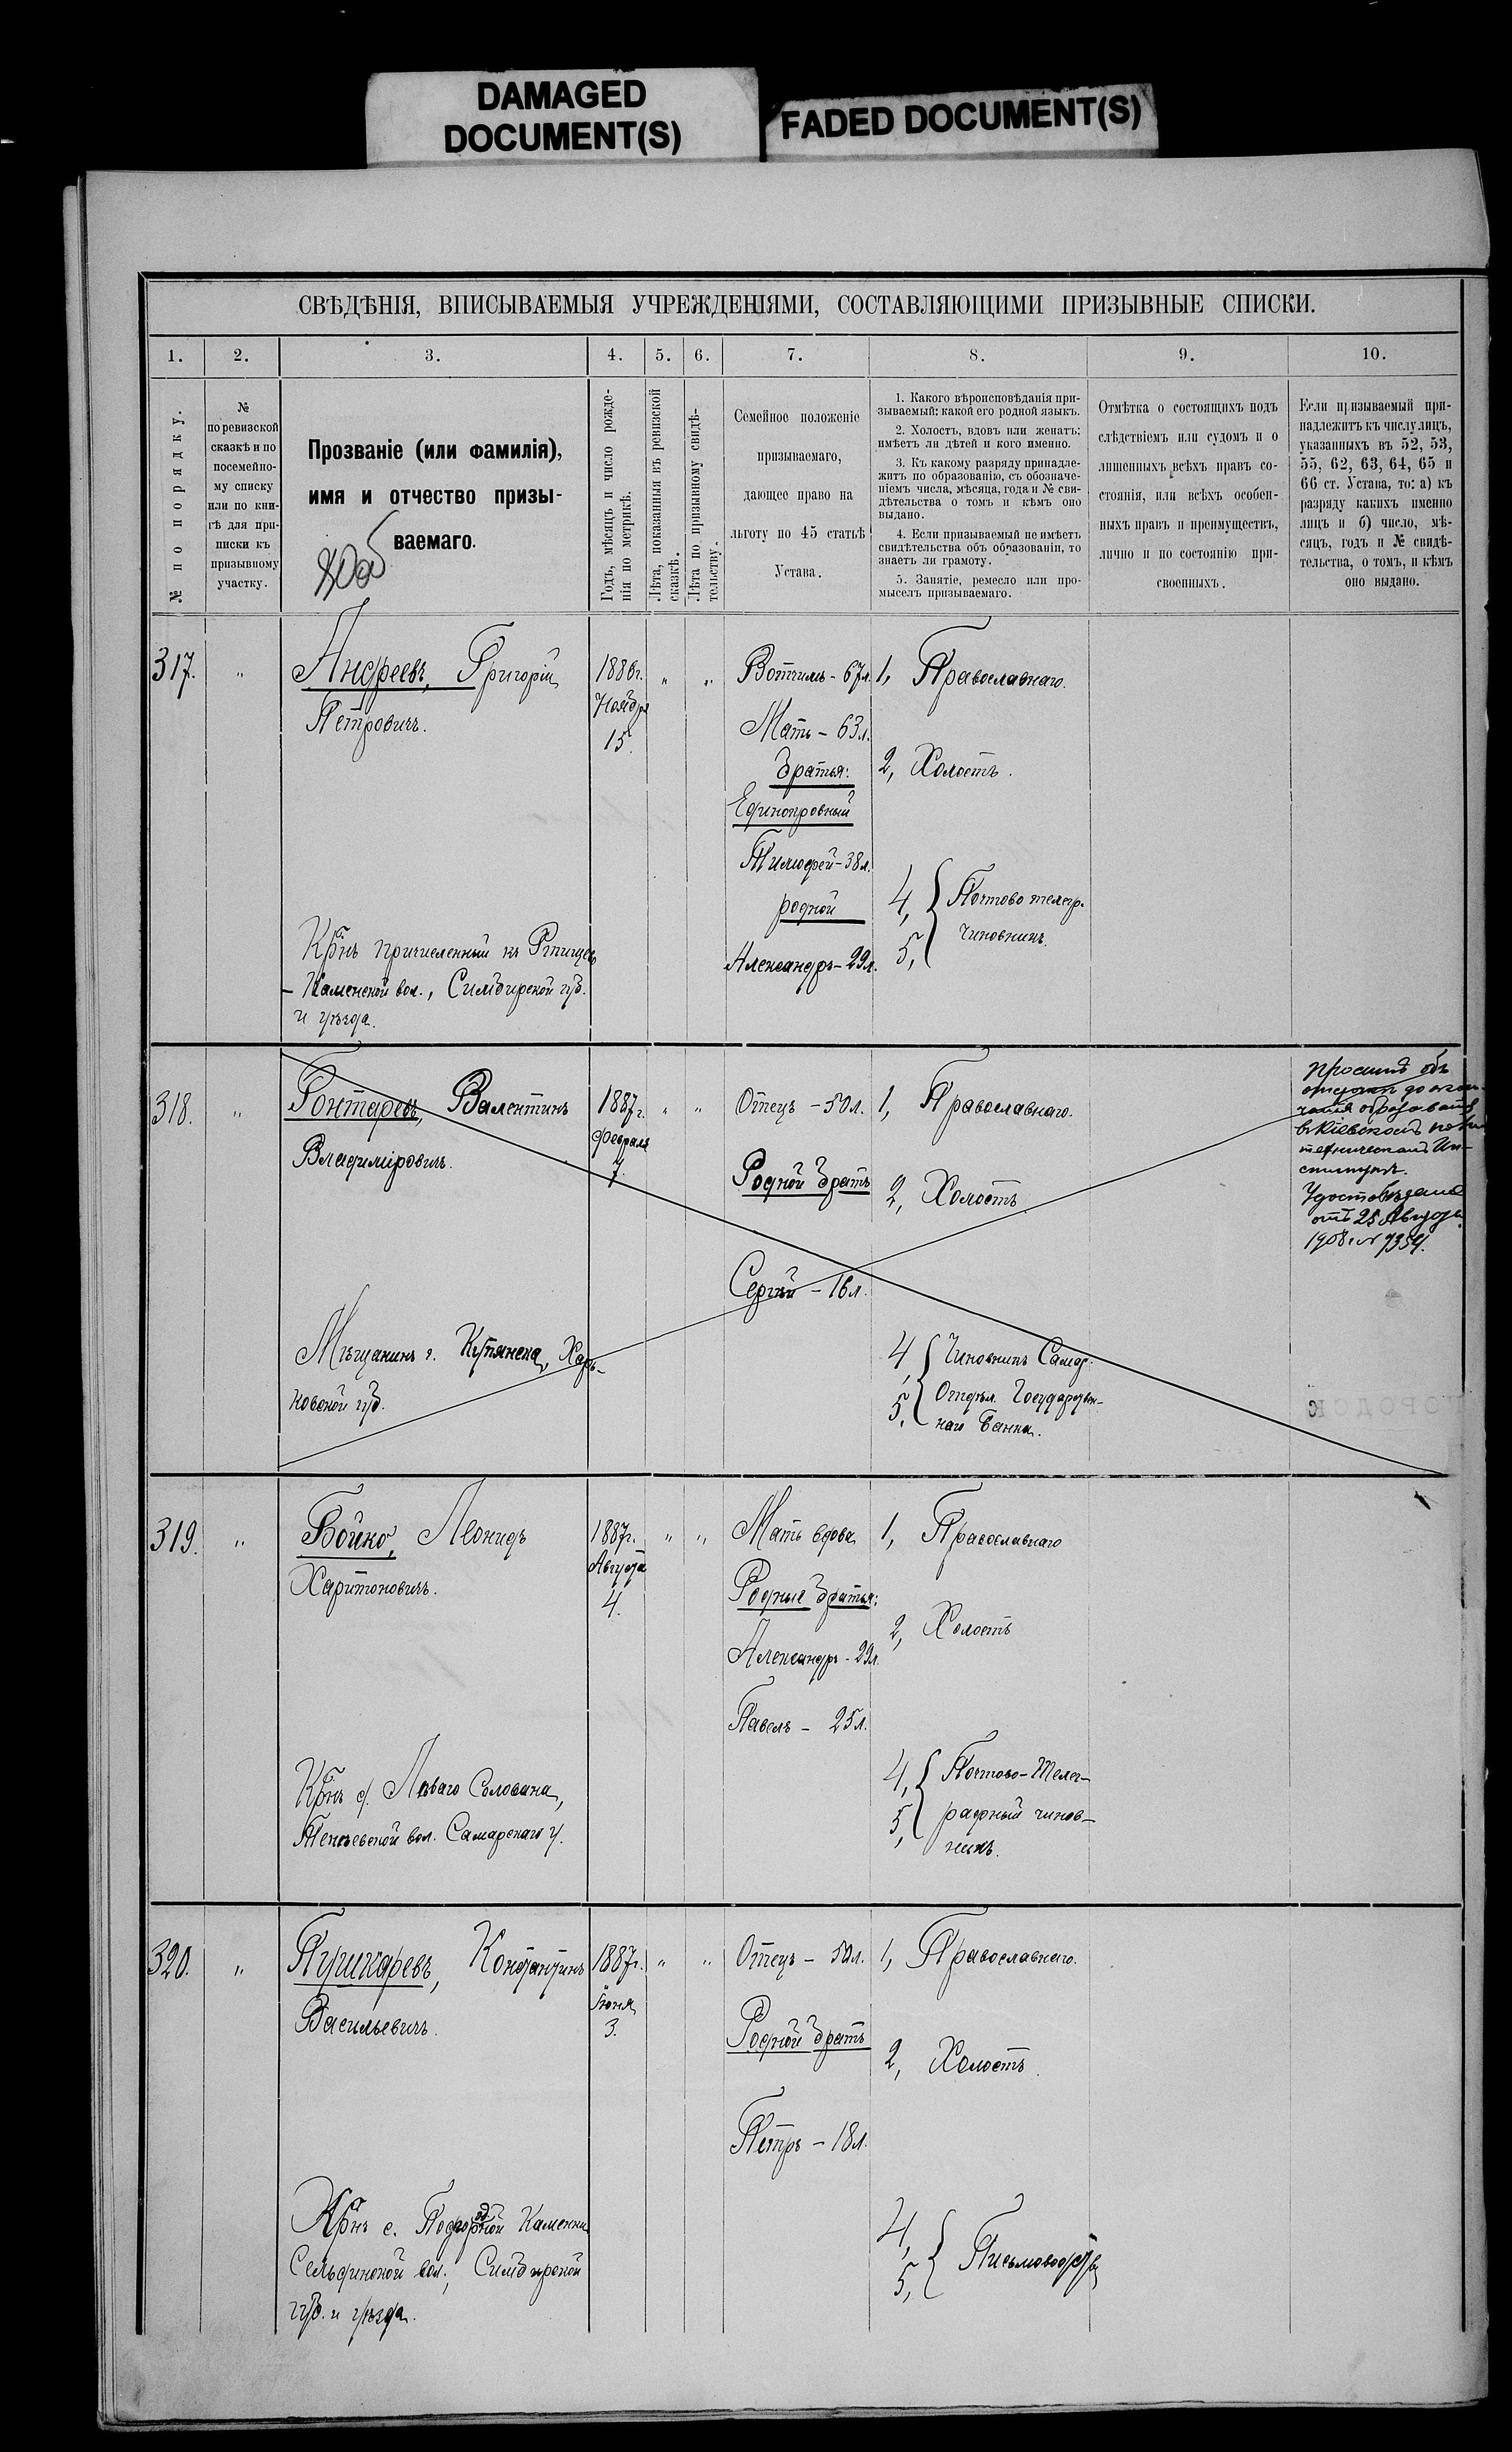 DAMAGED
DOCUMENT(S)
FADED DOCUMENT(S)
СВѢДѢНІЯ, ВПИСЫВАЕМЫЯ УЧРЕЖДЕНІЯМИ, СОСТАВЛЯЮЩИМИ ПРИЗЫВНЫЕ СПИСКИ.
1. 2. 3. 4. 5. 6. 7. 8. 9. 10.
№ по порядку.
№
по ревизской
сказкѣ и по
посемейно-
му списку
или по кни-
гѣ для при-
писки къ
призывному
участку.
Прозваніе (или фамилія),
имя и отчество призы-
ваемаго.
Годъ, мѣсяцъ и число рожде-
нія по метрикѣ.
Лѣта, показанныя въ ревизской
сказкѣ.
Лѣта по призывному свидѣ-
тельству.
Семейное положеніе
призываемаго,
дающее право на
льготу по 45 статьѣ
Устава.
1. Какого вѣроисповѣданія при-
зываемый: какой его родной языкъ.
2. Холостъ, вдовъ или женатъ;
имѣетъ ли дѣтей и кого именно.
3. Къ какому разряду принадле-
житъ по образованію, съ обозначе-
ніемъ числа, мѣсяца, года и № сви-
дѣтельства о томъ и кѣмъ оно
выдано.
4. Если призываемый не имѣетъ
свидѣтельства объ образованіи, то
знаетъ ли грамоту.
5. Занятіе, ремесло или про-
мыселъ призываемаго.
Отмѣтка о состоящихъ подъ
слѣдствіемъ или судомъ и о
лишенныхъ всѣхъ правъ со-
стоянія, или всѣхъ особен-
ныхъ правъ и преимуществъ,
лично и по состоянію при-
своенныхъ.
Если призываемый при-
надлежитъ къ числу лицъ,
указанныхъ въ 52, 53,
55, 62, 63, 64, 65 и
66 ст. Устава, то: а) къ
разряду какихъ именно
лицъ и б) число, мѣ-
сяцъ, годъ и № свидѣ-
тельства, о томъ, и кѣмъ
оно выдано.
317. „
Андреевъ, Григорій
Петровичъ.
Крнъ причисленный къ
- Каменской вол., Симбирской губ.
и уѣзда.
1886г.
Ноября
15.
„ „
Вотчимъ - 67л.
Мать - 63л.
братья:
Единокровный
Тимофей - 38л.
родной
Александръ - 29л.
1, Православнаго.
2, Холостъ.
4,
5,
Почтово телегр.
чиновникъ.
318. „
Гонтаревъ, Валентинъ
Владиміровичъ.
Мѣщанинъ г. Купянска, Харь-
ковской губ.
1887г.
Февраля
7.
„ „
Отецъ - 50л.
Родной братъ
Сергѣй - 16л.
1, Православнаго.
2, Холостъ.
4,
5,
Чиновникъ Самар.
Отдѣл. Государствен-
наго Банка.
проситъ объ
отсрочкѣ до окон-
чанія образованія
въ Кіевскомъ поли
техническомъ Ин-
ститутѣ.
от 25 Августа
1908 г. № 7354.
319. „
Бойко, Леонидъ
Харитоновичъ.
Крнъ с. Лѣваго Солована,
вол. Самарскаго у.
1887г.
Августа
4.
„ „
Мать вдова
Родные братья:
Александръ - 29л.
Павелъ - 25л.
1, Православнаго
2, Холостъ
4,
5,
Почтово-Телег-
рафный чинов-
никъ.
320. „
Пушкаревъ, Константинъ
Васильевичъ.
Крнъ с. Подгорной Каменки
вол., Симбирской
губ. и уѣзда.
1887г.
Іюня
3.
„ „
Отецъ - 50л.
Родной братъ
Петръ - 18л.
1, Православнаго.
2, Холостъ.
4,
5,
Письмоводство